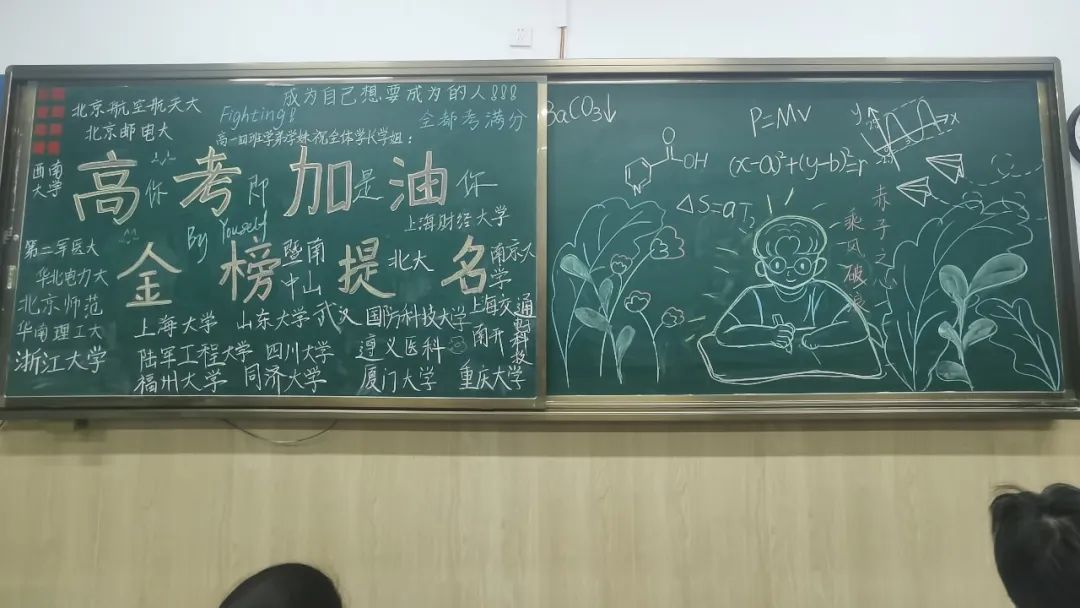 北京航空航天大
北京邮电大
西南
大学
成为自己想要成为的人
Fighting!
全都考满分
高一四班学弟学妹祝全体学长学姐:
高考加油
你即是你
By Youself
上海财经大学
金榜提名
第二军医大
华北电力大
北京师范
华南理工大
浙江大学
暨南
中山
北大
南京大
学
上海大学
山东大学
武汉
国防科技大学
上海交通
陆军工程大学
四川大学
遵义医科
南开
福州大学
同济大学
厦门大学
重庆大学
BaCO3↓
P=Mv
OH
(x-a)²+(y-b)²=r
y
x
赤子之心
乘风破浪